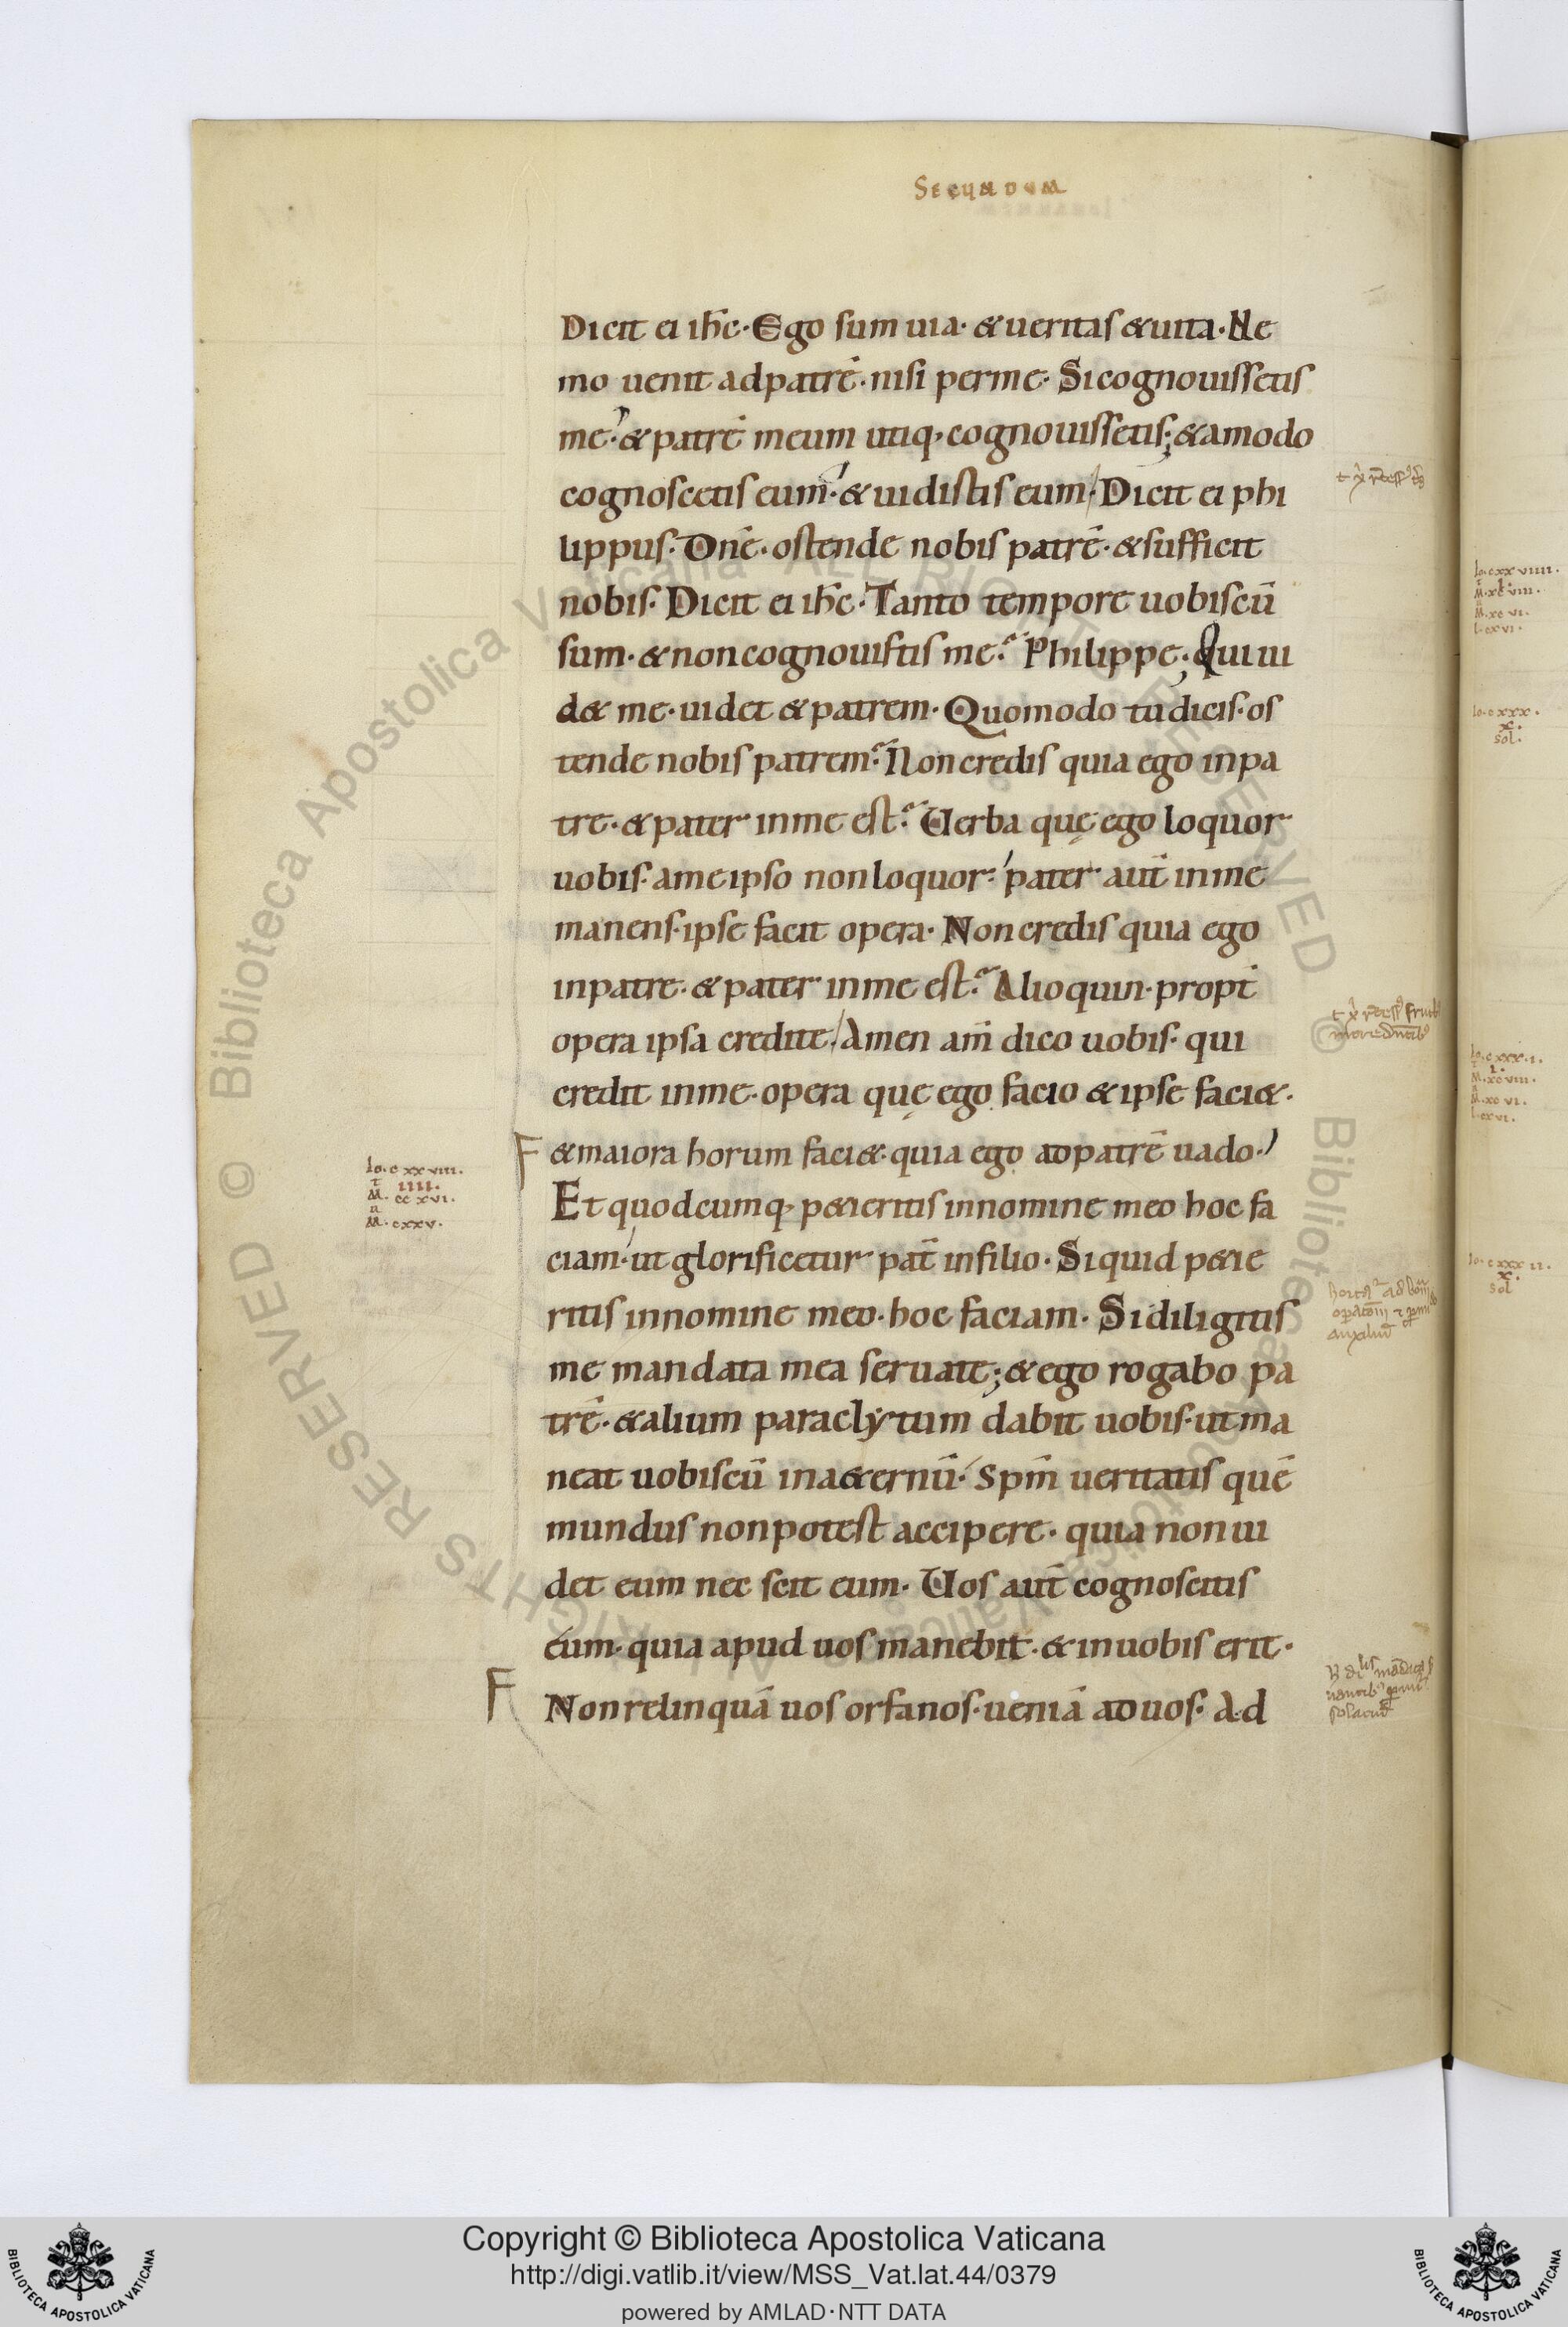 Secundum
Dicit ei ihc̄· Ego sum uia· & ueritas & uita· Ne
mo uenit ad patrē· nisi per me· Si cognouissetis
me· & patrē meum utiq· cognouissetis; & amodo
cognoscetis eum· & uidistis eum· Dicit ei phi
lippus· Dnē· ostende nobis patrē· & sufficit
nobis· Dicit ei ihc̄· Tanto tempore uobiscū
sum· & non cognouistis me? Philippe; Qui ui
d& me· uidet & patrem· Quomodo tu dicis· os
tende nobis patrem? Non credis quia ego in pa
tre· & pater in me est? Uerba quę ego loquor
uobis· a me ipso non loquor· pater aut̄ in me
manens· ipse facit opera· Non credis quia ego
in patre· & pater in me est? Alioquin· propt̄
opera ipsa credite· Amen am̄ dico uobis· qui
credit in me· opera quę ego facio & ipse faci&·
F & maiora horum faci&· quia ego ad patrē uado·
Io. c xx viiii.
IIII.
M. cc xvi.
M. cxxv.
Et quodcumq· p&ieritis in nomine meo hoc fa
ciam· ut glorificetur pat̄ in filio· Si quid p&ie
ritis in nomine meo· hoc faciam· Si diligitis
me mandata mea seruate; & ego rogabo pa
trē· & alium paraclytum dabit uobis· ut ma
neat uobiscū in a&ernū· Spm̄ ueritatis quē
mundus non potest accipere· quia non ui
det eum nec scit eum· Uos aut̄ cognoscitis
eum· quia apud uos manebit· & in uobis erit·
F Non relinquā uos orfanos· ueniā ad uos· Ad
Io. cxx viiii.
M. xc viii.
M. xc vi.
L. cxvi.
Io. c xxx.
x.
sol.
Io. c xxx. i.
I.
M. xc viii.
M. xc vi.
L. cxvi.
Io. c xxx ii.
x.
sol
© Biblioteca Apostolica Vaticana ALL RIGHTS RESERVED © Biblioteca Apostolica Vaticana ALL RIGHTS RESERVED
Copyright © Biblioteca Apostolica Vaticana
http://digi.vatlib.it/view/MSS_Vat.lat.44/0379
powered by AMLAD·NTT DATA
BIBLIOTECA APOSTOLICA VATICANA
BIBLIOTECA APOSTOLICA VATICANA